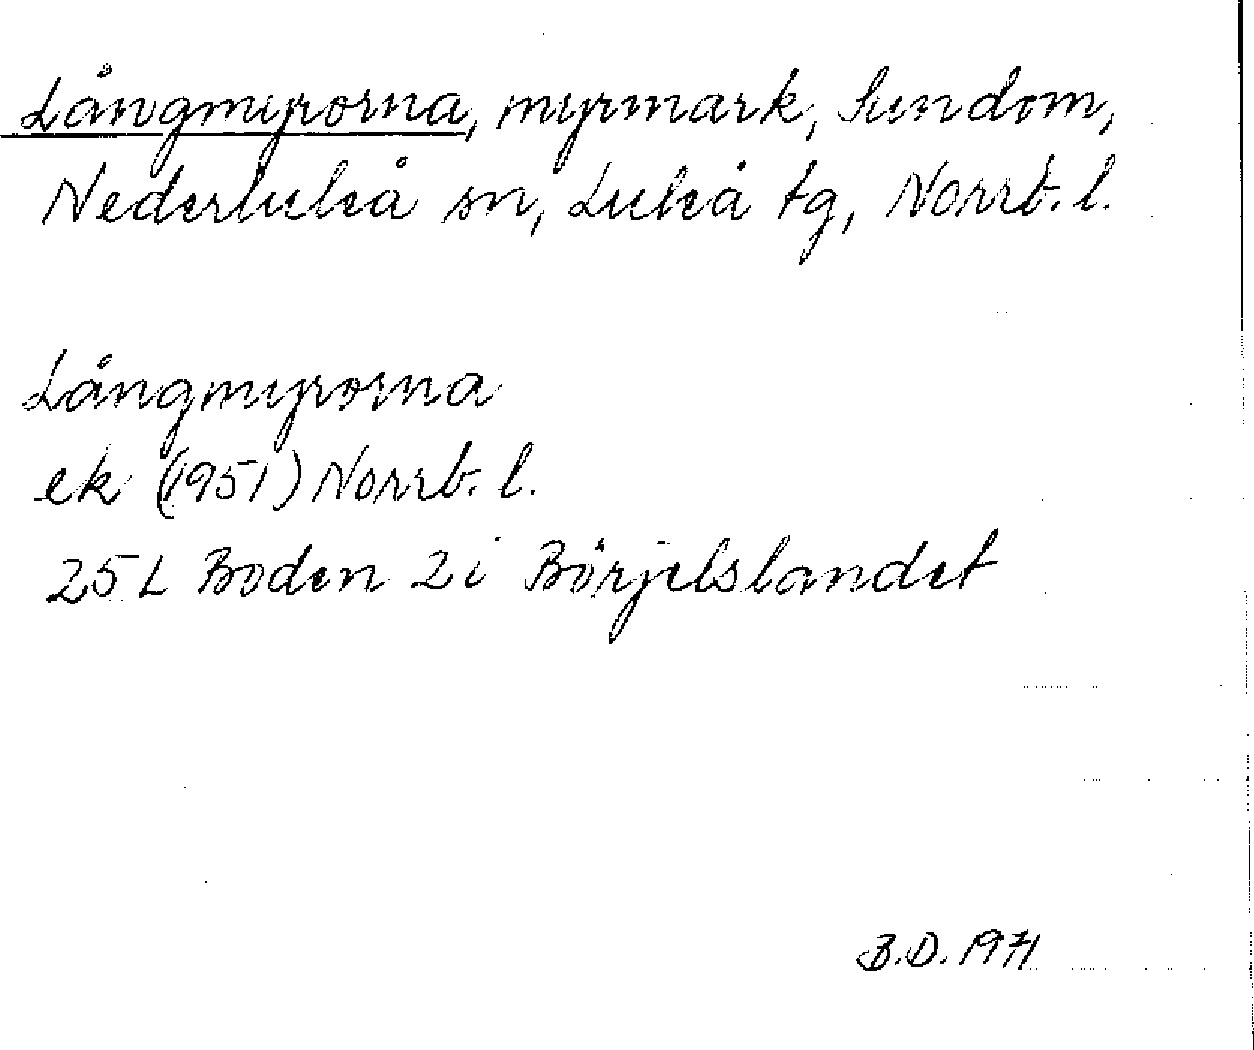 Långmyrorna, myrmark, Sundom,
Nederluleå sn, Luleå tg, Norrb. l.
Långmyrorna
ek (1951) Norrb. l.
25 L Boden 2 i Börjelslandet
B.D. 1971